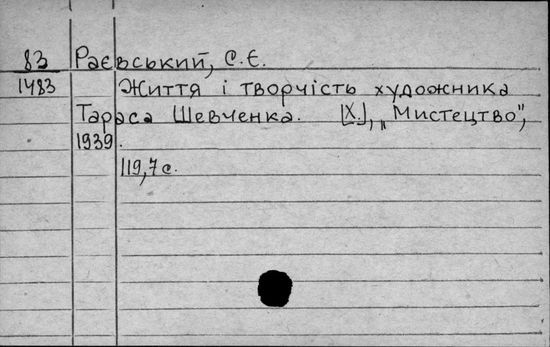 83 Раєвський, С.Є.
1483 Життя і творчість художника
Тараса Шевченка. [Х.], „Мистецтво",
1939.
119,7 с.